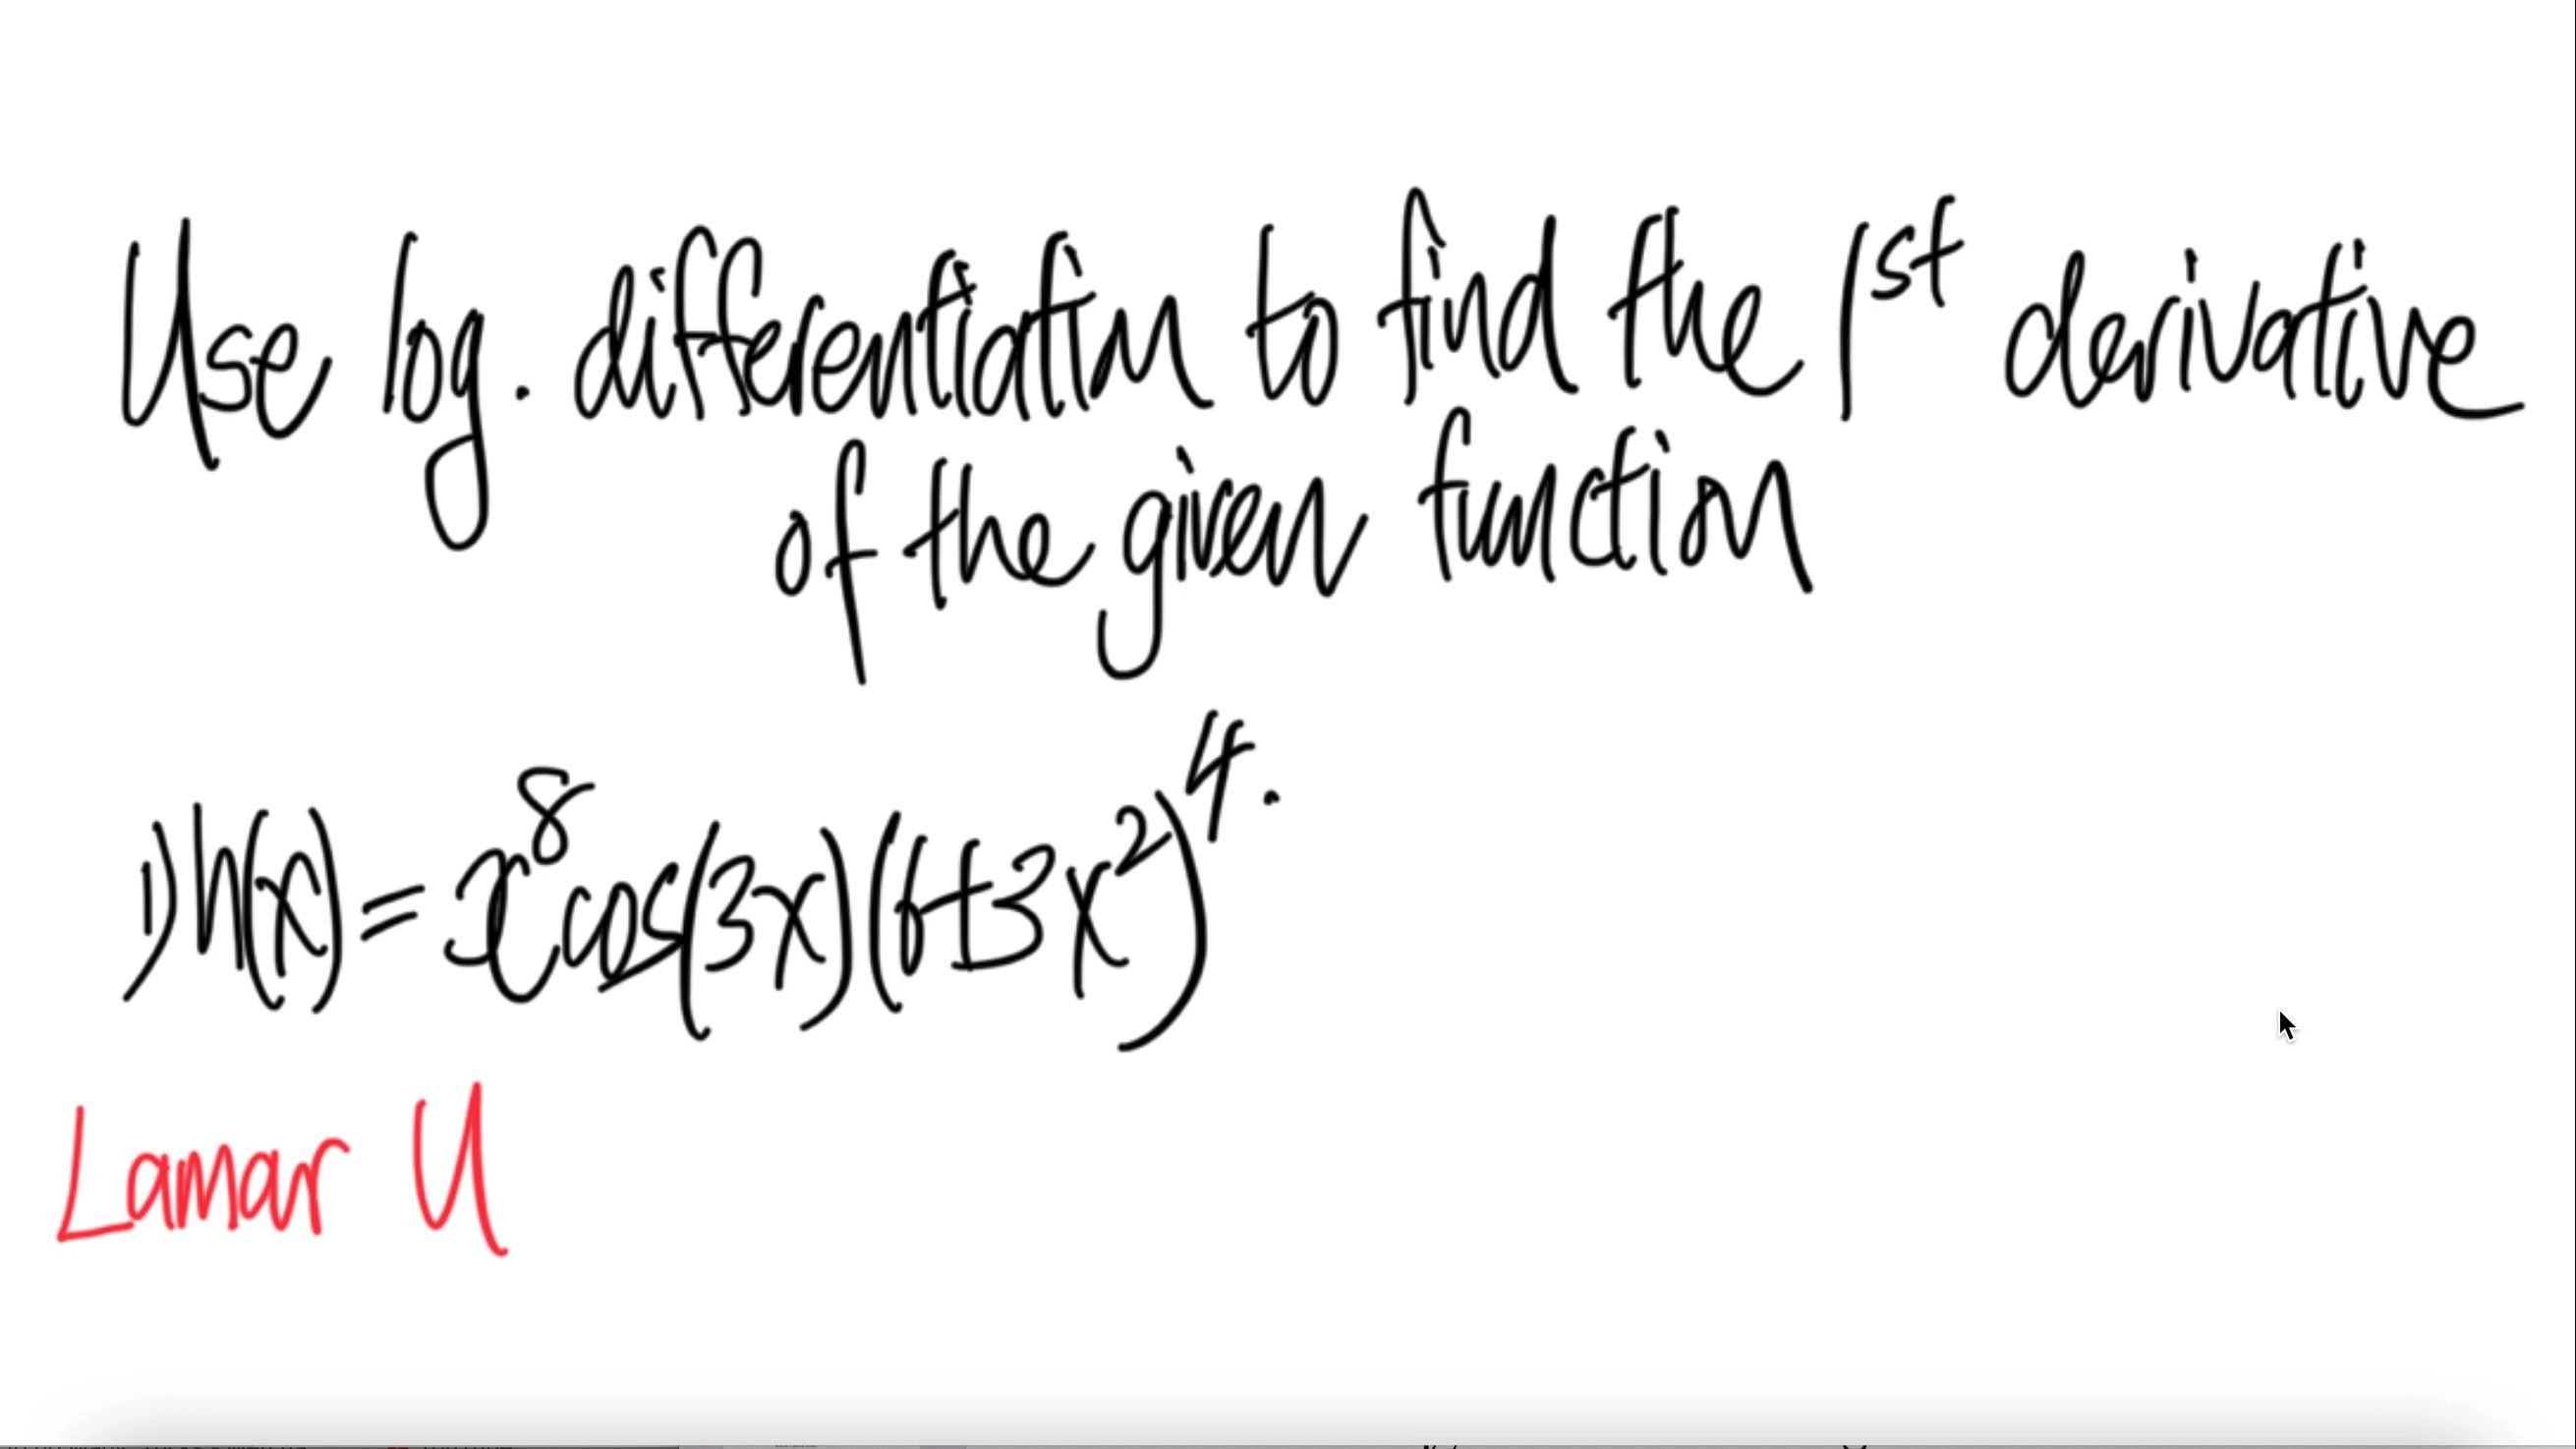 Use log. differentiation to find the 1st derivative
of the given function
1) h(x) = x^8 cos(3x)(6+3x^2)^4.
Lamar U